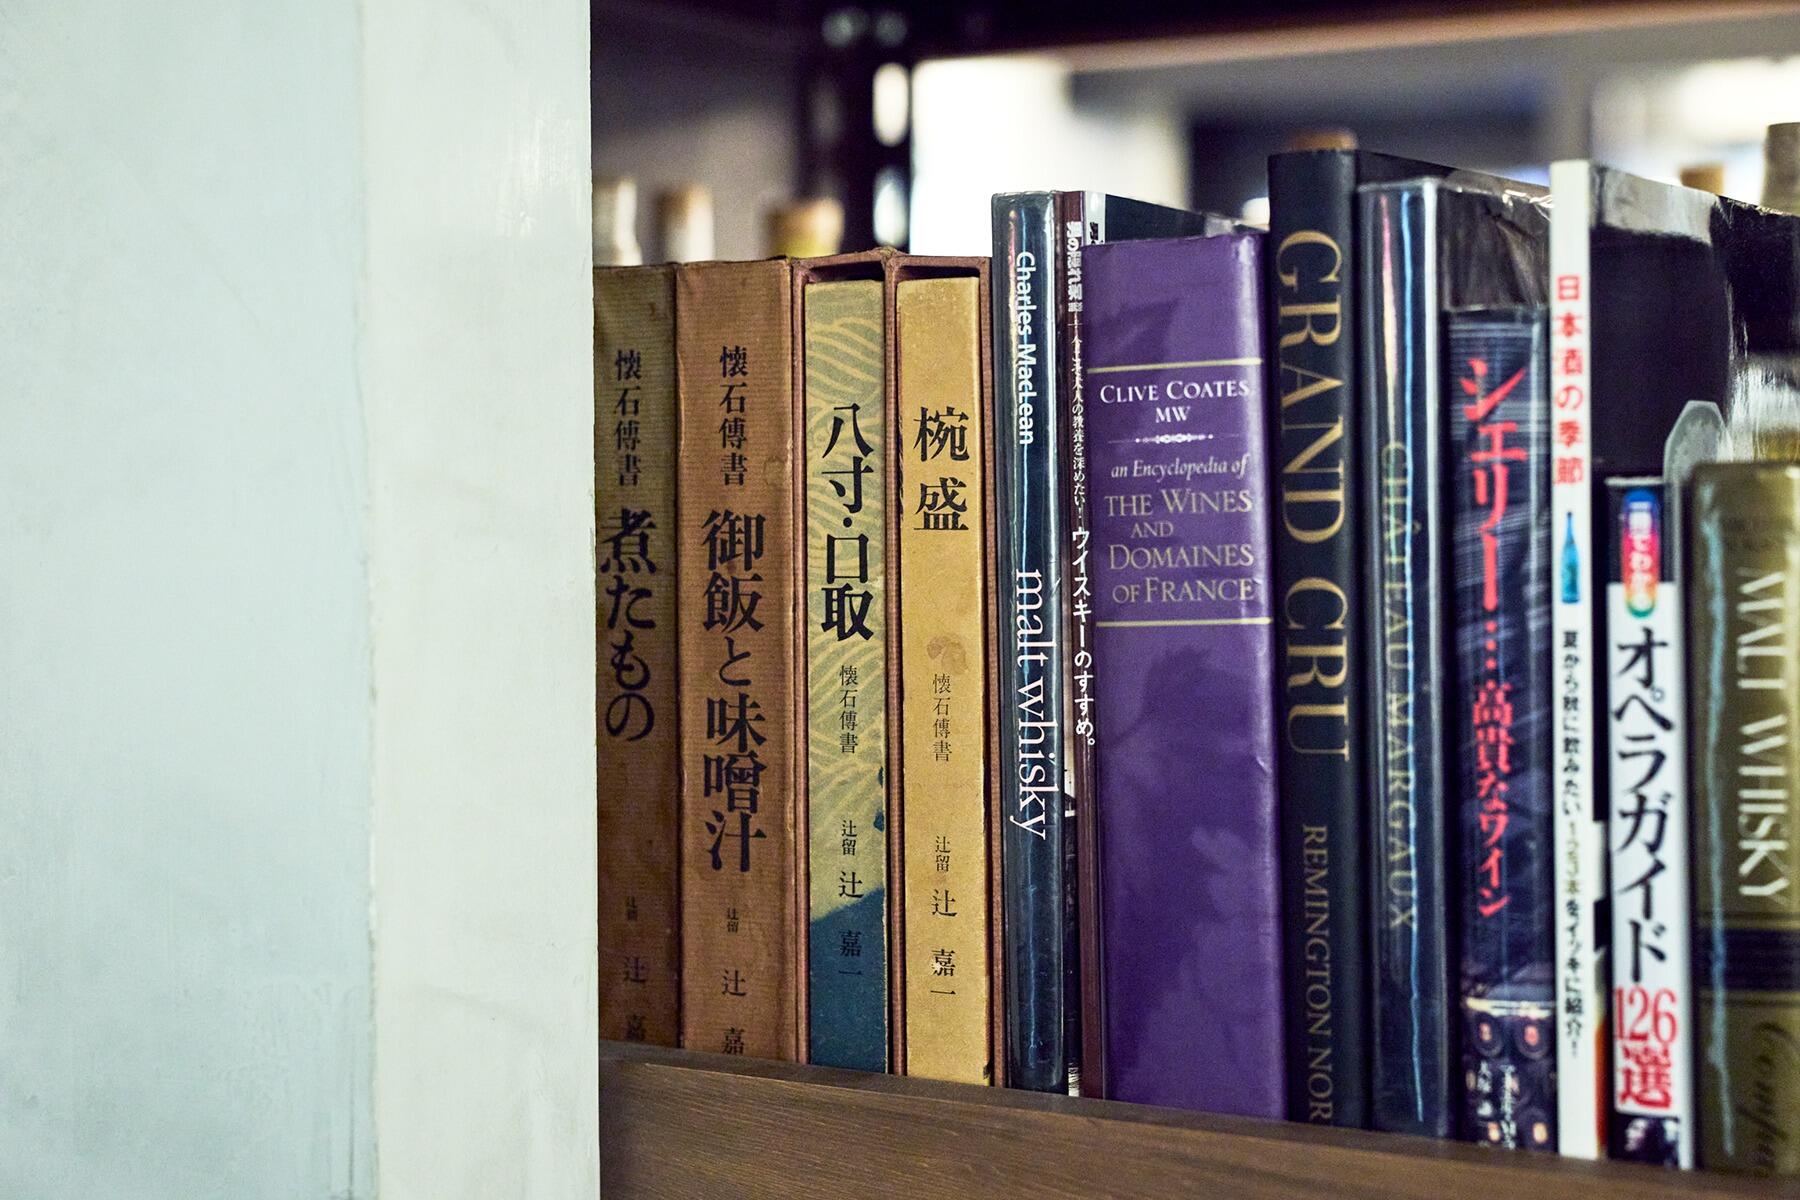 懐石傳書
煮たもの
辻留
辻
嘉
懐石傳書
御飯と味噌汁
辻留
辻
嘉
八寸・口取
懐石傳書
辻留
辻
嘉一
椀盛
懐石傳書
辻留
辻
嘉一
Charles MacLean
malt whisky
男の隠れ家
今こそ大人の教養を深めたい!
ウイスキーのすすめ。
CLIVE COATES
MW
an Encyclopedia of
THE WINES
AND
DOMAINES
OF FRANCE
GRAND CRU
REMINGTON NOR
CHÂTEAU MARGAUX
シエリー…高貴なワイン
大塚
日本酒の季節
夏から秋に飲みたい123本をイッキに紹介!
オペラガイド
126
選
MALT WHISKY
Compa